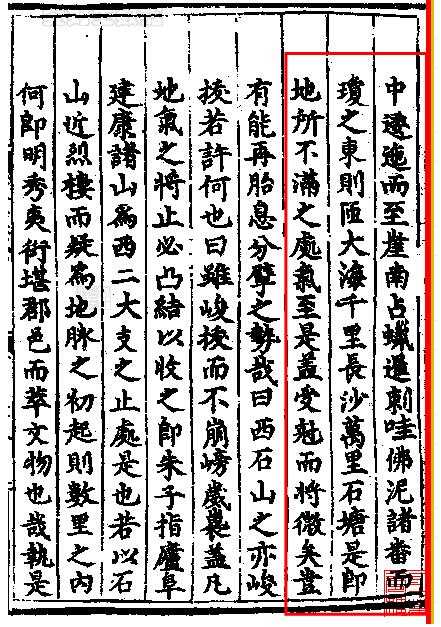 中遷迤而至崖南占蠟暹剌哇佛泥諸番而
瓊之東則匝大海千里長沙萬里石塘是即
地所不滿之處氣至是蓋受尅而將微矣豈
有能再胎息分孽之勢哉曰西石山之亦峻
掕若許何也曰雖峻掕而不崩嵭歲㠔蓋凡
地氣之將止必凸結以收之即朱子指廬阜
建康諸山爲西二大支之止處是也若以石
山近烈樓而疑爲地脉之初起則數里之內
何即明秀夷衍堪郡邑而萃文物也哉執是